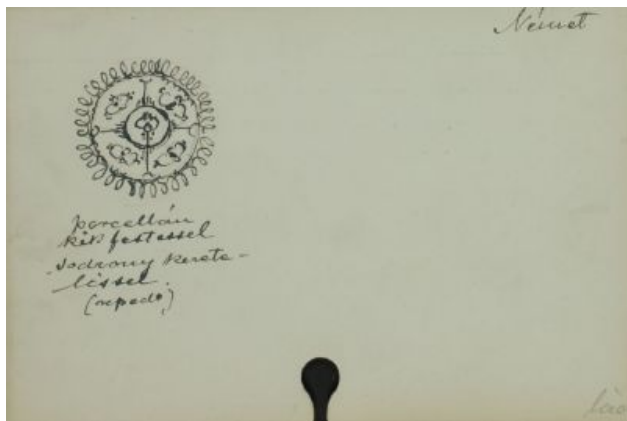 Német
porcellán
kék festéssel
sodrony kerete-
léssel.
(reped)